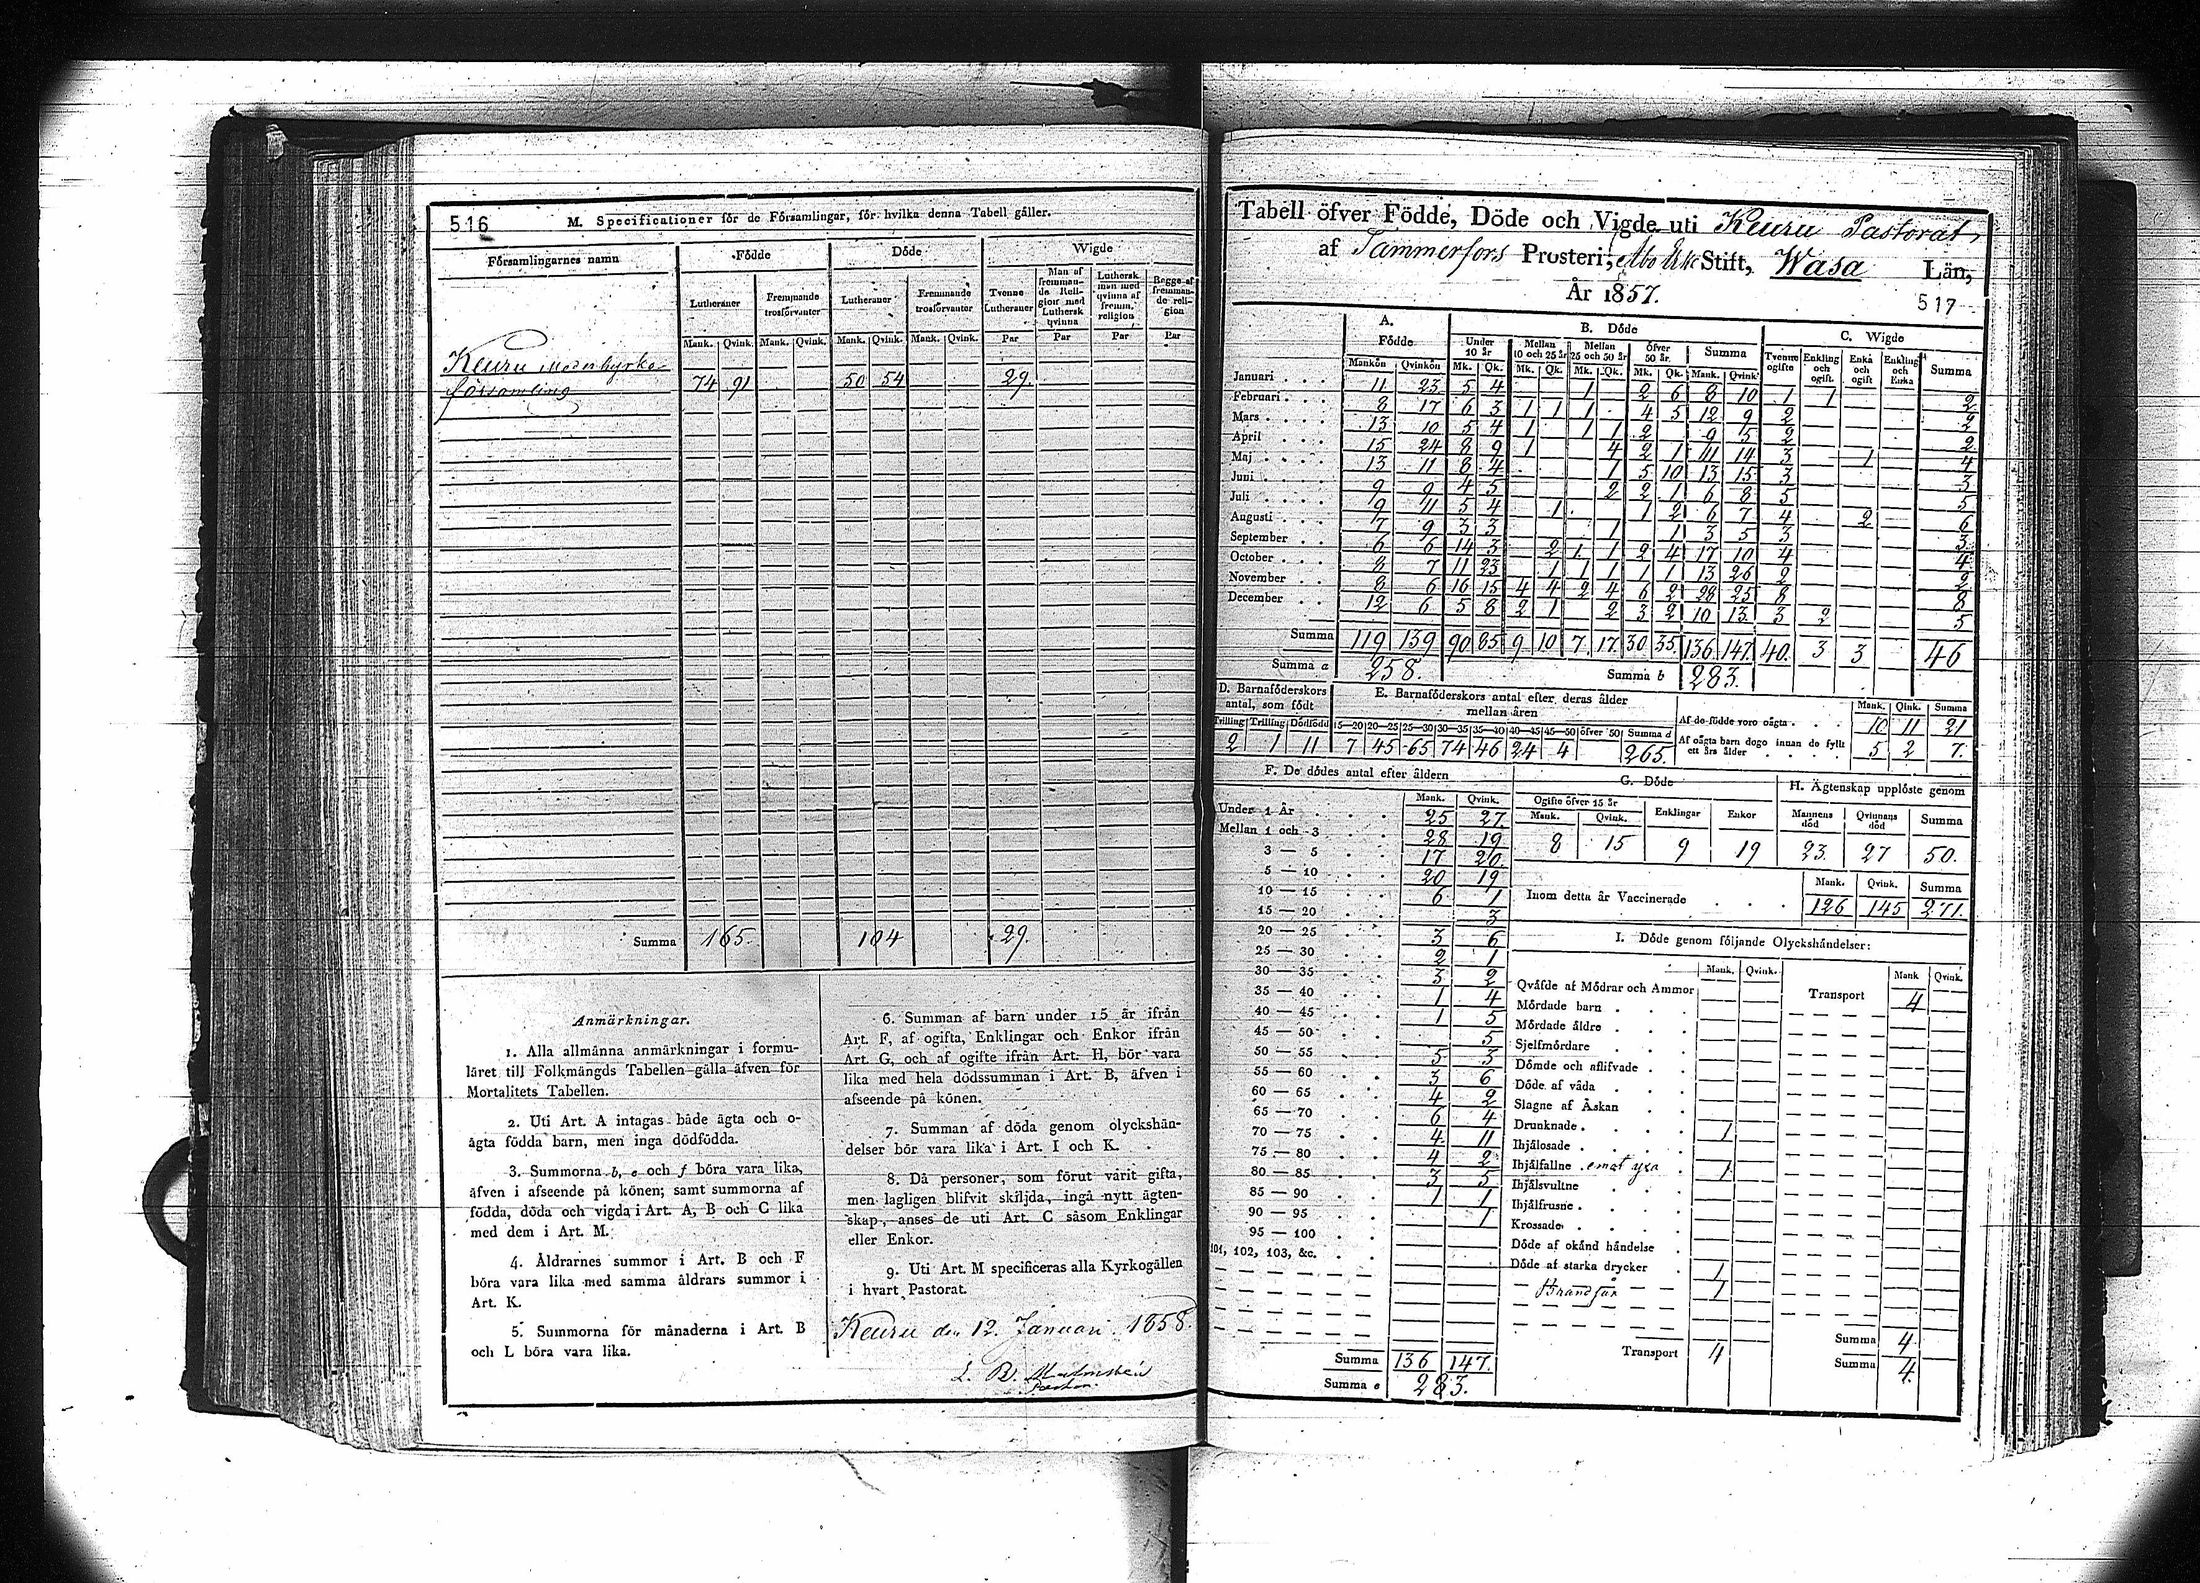 516
M. Specificationer för de Församlingar, för hvilka denna Tabell gäller.
Församlingarnes namn | Födde | Döde | Wigde
Lutheraner | Fremmande trosförvanter | Lutheraner | Fremmande trosförvanter | Tvenne Lutheraner | Man af fremmande Religion med Luthersk qvinna | Luthersk man med qvinna af fremm. religion | Begge af fremmande religion
Mank. | Qvink. | Mank. | Qvink. | Mank. | Qvink. | Mank. | Qvink. | Par | Par | Par | Par
Keuru Moderkyrko
församling 74 91 50 54 29.
Summa 165. 104 29.
Anmärkningar.
1. Alla allmänna anmärkningar i formu-
läret till Folkmängds Tabellen gälla äfven för
Mortalitets Tabellen.
2. Uti Art. A intagas både ägta och o-
ägta födda barn, men inga dödfödda.
3. Summorna b, e och f böra vara lika,
äfven i afseende på könen; samt summorna af
födda, döda och vigda i Art. A, B och C lika
med dem i Art. M.
4. Åldrarnes summor i Art. B och F
böra vara lika med samma åldrars summor i
Art. K.
5. Summorna för månaderna i Art. B
och L böra vara lika.
6. Summan af barn under 15 år ifrån
Art. F, af ogifta, Enklingar och Enkor ifrån
Art. G, och af ogifte ifrån Art. H, bör vara
lika med hela dödssumman i Art. B, äfven i
afseende på könen.
7. Summan af döda genom olyckshän-
delser bör vara lika i Art. I och K.
8. Då personer, som förut varit gifta,
men lagligen blifvit skiljda, ingå nytt ägten-
skap, anses de uti Art. C såsom Enklingar
eller Enkor.
9. Uti Art. M specificeras alla Kyrkogällen
i hvart Pastorat.
Keuru den 12. Januari 1858.
Tabell öfver Födde, Döde och Vigde uti Keuru Pastorat,
af Tammerfors Prosteri, Åbo Ärke Stift, Wasa Län,
År 1857.
517
A. Födde | B. Döde | C. Wigde
Mankön | Qvinkön | Under 10 år | Mellan 10 och 25 år | Mellan 25 och 50 år | öfver 50 år. | Summa | Tvenne ogifte | Enkling och ogift. | Enka och ogift | Enkling och Enka | Summa
Mk. | Qk. | Mk. | Qk. | Mk. | Qk. | Mk. | Qk. | Mank. | Qvink.
Januari 11 23 5 4 1 2 6 8 10 1 1 2
Februari 8 17 6 3 1 1 1 4 5 12 9 2 2
Mars 13 10 5 4 1 1 1 2 9 5 2 2
April 15 24 8 9 1 4 2 1 11 14 3 1 4
Maj 13 11 8 4 1 5 10 13 15 3 3
Juni 9 9 4 5 2 2 1 6 8 5 5
Juli 9 11 5 4 1 1 2 6 7 4 2 6
Augusti 7 9 3 3 1 1 3 5 3 3
September 6 6 14 3 2 1 1 2 4 17 10 4 4
October 8 7 11 23 1 1 1 1 1 13 26 2 2
November 8 6 16 15 4 4 2 4 6 2 28 25 8 8
December 12 6 5 8 2 1 2 3 2 10 13 3 2 5
Summa 119 139 90 85 9 10 7 17 30 35 136 147 40. 3 3 46
Summa a 258. Summa b 283.
D. Barnaföderskors antal, som födt
Tvilling | Trilling | Dödfödd
2 1 11
E. Barnaföderskors antal efter deras ålder mellan åren
15—20 | 20—25 | 25—30 | 30—35 | 35—40 | 40—45 | 45—50 | öfver 50 | Summa d
7 45 65 74 46 24 4 265.
Mank. | Qink. | Summa
Af de födde voro oägta 10 11 21
Af oägta barn dogo innan de fyllt ett års ålder 5 2 7.
F. De dödes antal efter åldern
Mank. Qvink.
Under 1 År 25 27.
Mellan 1 och 3 28 19
3 — 5 17 20
5 — 10 20 19
10 — 15 6 1
15 — 20 3
20 — 25 3 6
25 — 30 2 1
30 — 35 3 2
35 — 40 1 4
40 — 45 1 5
45 — 50 5
50 — 55 5 3
55 — 60 3 6
60 — 65 4 2
65 — 70 6 4
70 — 75 4 11
75 — 80 4 2
80 — 85 3 5
85 — 90 1 1
90 — 95 1
95 — 100
101, 102, 103, &c.
Summa 136 147.
Summa e 283.
G. Döde
Ogifte öfver 15 år | Enklingar | Enkor
Mank. | Qvink.
8 15 9 19
H. Ägtenskap upplöste genom
Mannens död | Qvinnans död | Summa
23. 27 50.
Mank. Qvink. Summa
Inom detta år Vaccinerade 126 145 271.
I. Döde genom följande Olyckshändelser:
Mank. Qvink. Mank Qvink.
Qväfde af Mödrar och Ammor
Mördade barn
Mördade äldre
Sjelfmördare
Dömde och aflifvade
Döde af våda
Slagne af Åskan
Drunknade 1
Ihjälosade
Ihjälfallne emot yxa 1
Ihjälsvultne
Ihjälfrusne
Krossade
Döde af okänd händelse
Döde af starka drycker 1
Brandsår 1
Transport 4
Transport 4
Summa 4
Summa 4.